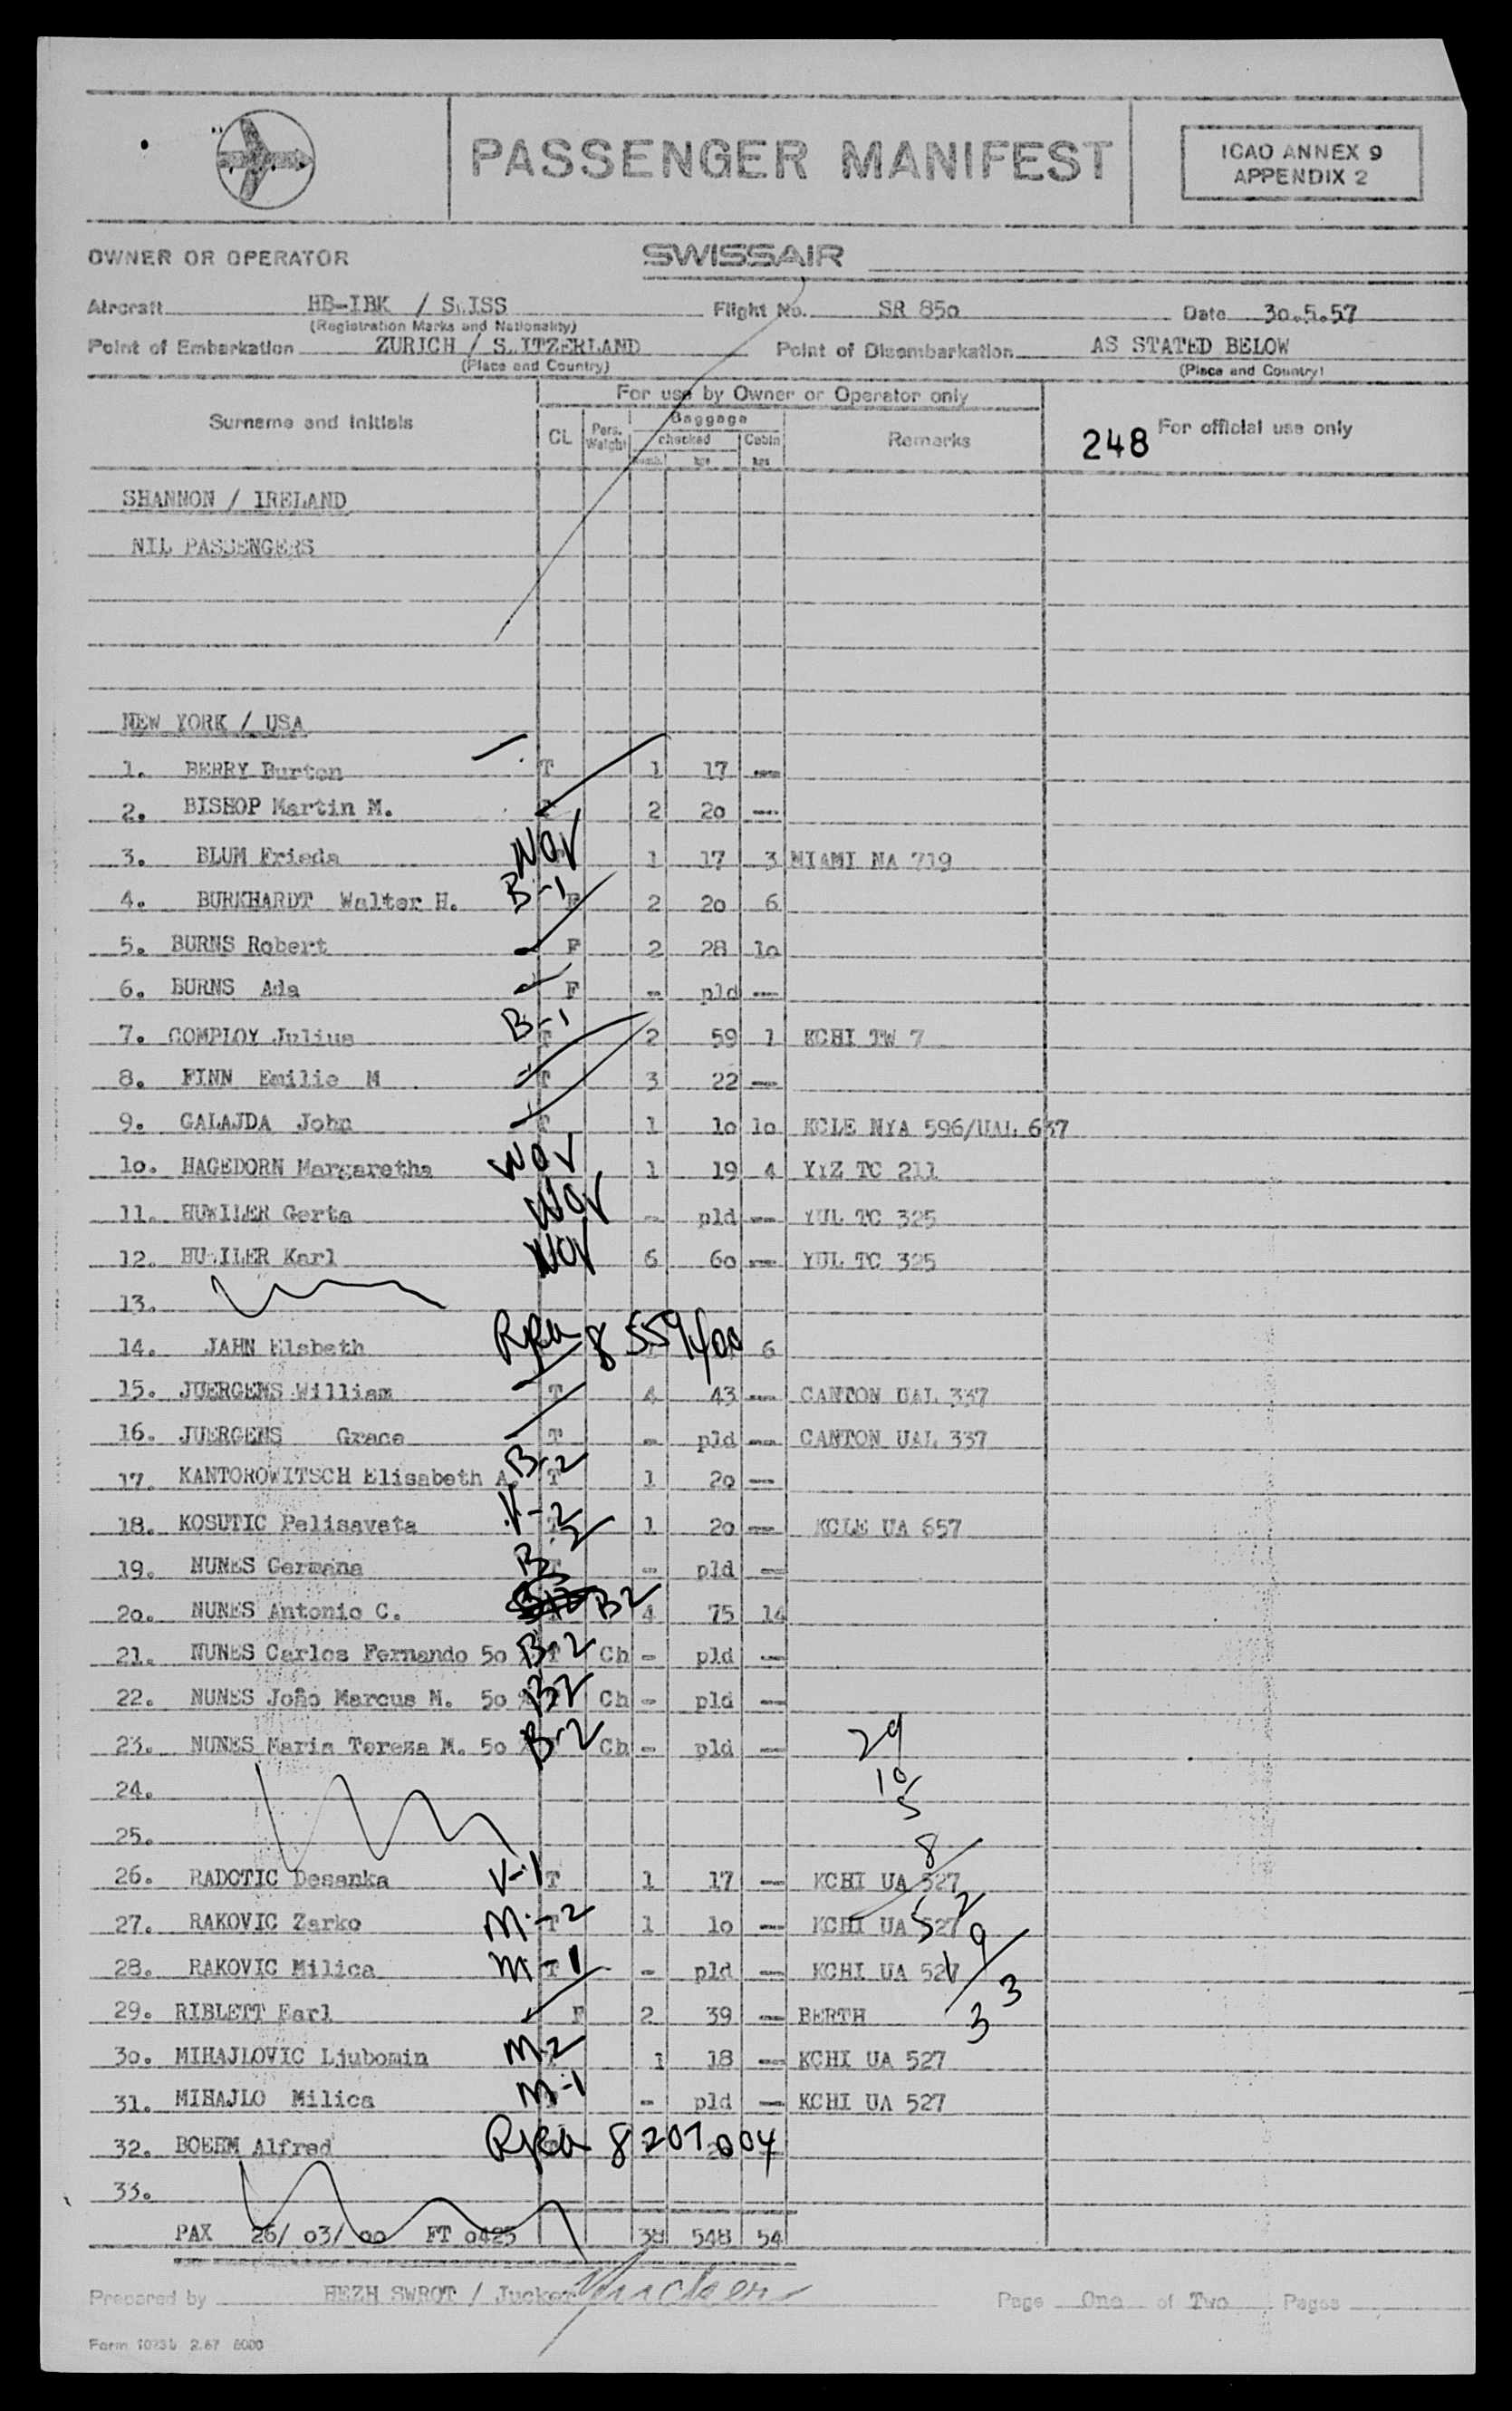 PASSENGER MANIFEST
ICAO ANNEX 9
APPENDIX 2
OWNER OR OPERATOR SWISSAIR
Aircraft HB-IBK / S.ISS Flight No. SR 850 Date 30.5.57
(Registration Marks and Nationality)
Point of Embarkation ZURICH / S.ITZERLAND Point of Disembarkation AS STATED BELOW
(Place and Country) (Place and Country)
For use by Owner or Operator only
Surname and Initials CL Pers. Weight Baggage checked Cabin Remarks 248 For official use only
numb. kgs kgs
SHANNON / IRELAND
NIL PASSENGERS
NEW YORK / USA
1. BERRY Burton T 1 17 --
2. BISHOP Martin M. 2 20 --
3. BLUM Frieda NOV 1 17 3 MIAMI NA 719
4. BURKHARDT Walter H. B-1 F 2 20 6
5. BURNS Robert F 2 28 10
6. BURNS Ada F - pld --
7. COMPLOY Julius B-1 T 2 59 1 KCHI TW 7
8. FINN Emilie M T 3 22 --
9. GALAJDA John T 1 10 10 KCLE NYA 596/UAL 637
10. HAGEDORN Margaretha NOV 1 19 4 YYZ TC 211
11. HUWILER Gerta NOV - pld -- YUL TC 325
12. HU.ILER Karl NOV 6 60 -- YUL TC 325
13.
14. JAHN Elsbeth 8 559400 6
15. JUERGENS William T 4 43 -- CANTON UAL 337
16. JUERGENS Grace T - pld -- CANTON UAL 337
17. KANTOROWITSCH Elisabeth A. B-2 T 1 20 --
18. KOSUTIC Pelisaveta V-2 T 1 20 -- KCLE UA 657
19. NUNES Germana B-2 T - pld --
20. NUNES Antonio C. B2 4 75 14
21. NUNES Carlos Fernando 50 B-2 T Ch - pld --
22. NUNES João Marcus M. 50 B2 Ch - pld --
23. NUNES Maria Tereza M. 50 B-2 Ch - pld --
29
10
5
24.
25.
8
26. RADOTIC Desanka V-1 T 1 17 -- KCHI UA 527
52
27. RAKOVIC Zarko M-2 T 1 10 -- KCHI UA 527
19
28. RAKOVIC Milica M-1 T - pld -- KCHI UA 527
33
29. RIBLETT Earl F 2 39 -- BERTH
30. MIHAJLOVIC Ljubomin M2 1 18 -- KCHI UA 527
31. MIHAJLO Milica M-1 - pld -- KCHI UA 527
32. BOEHM Alfred 8 207 004
33.
PAX 26/ 03/ 00 FT 0425 38 548 54
Prepared by HEZH SWROT / Jucker Jucker Page One of Two Pages
Form 10231 2.57 6000